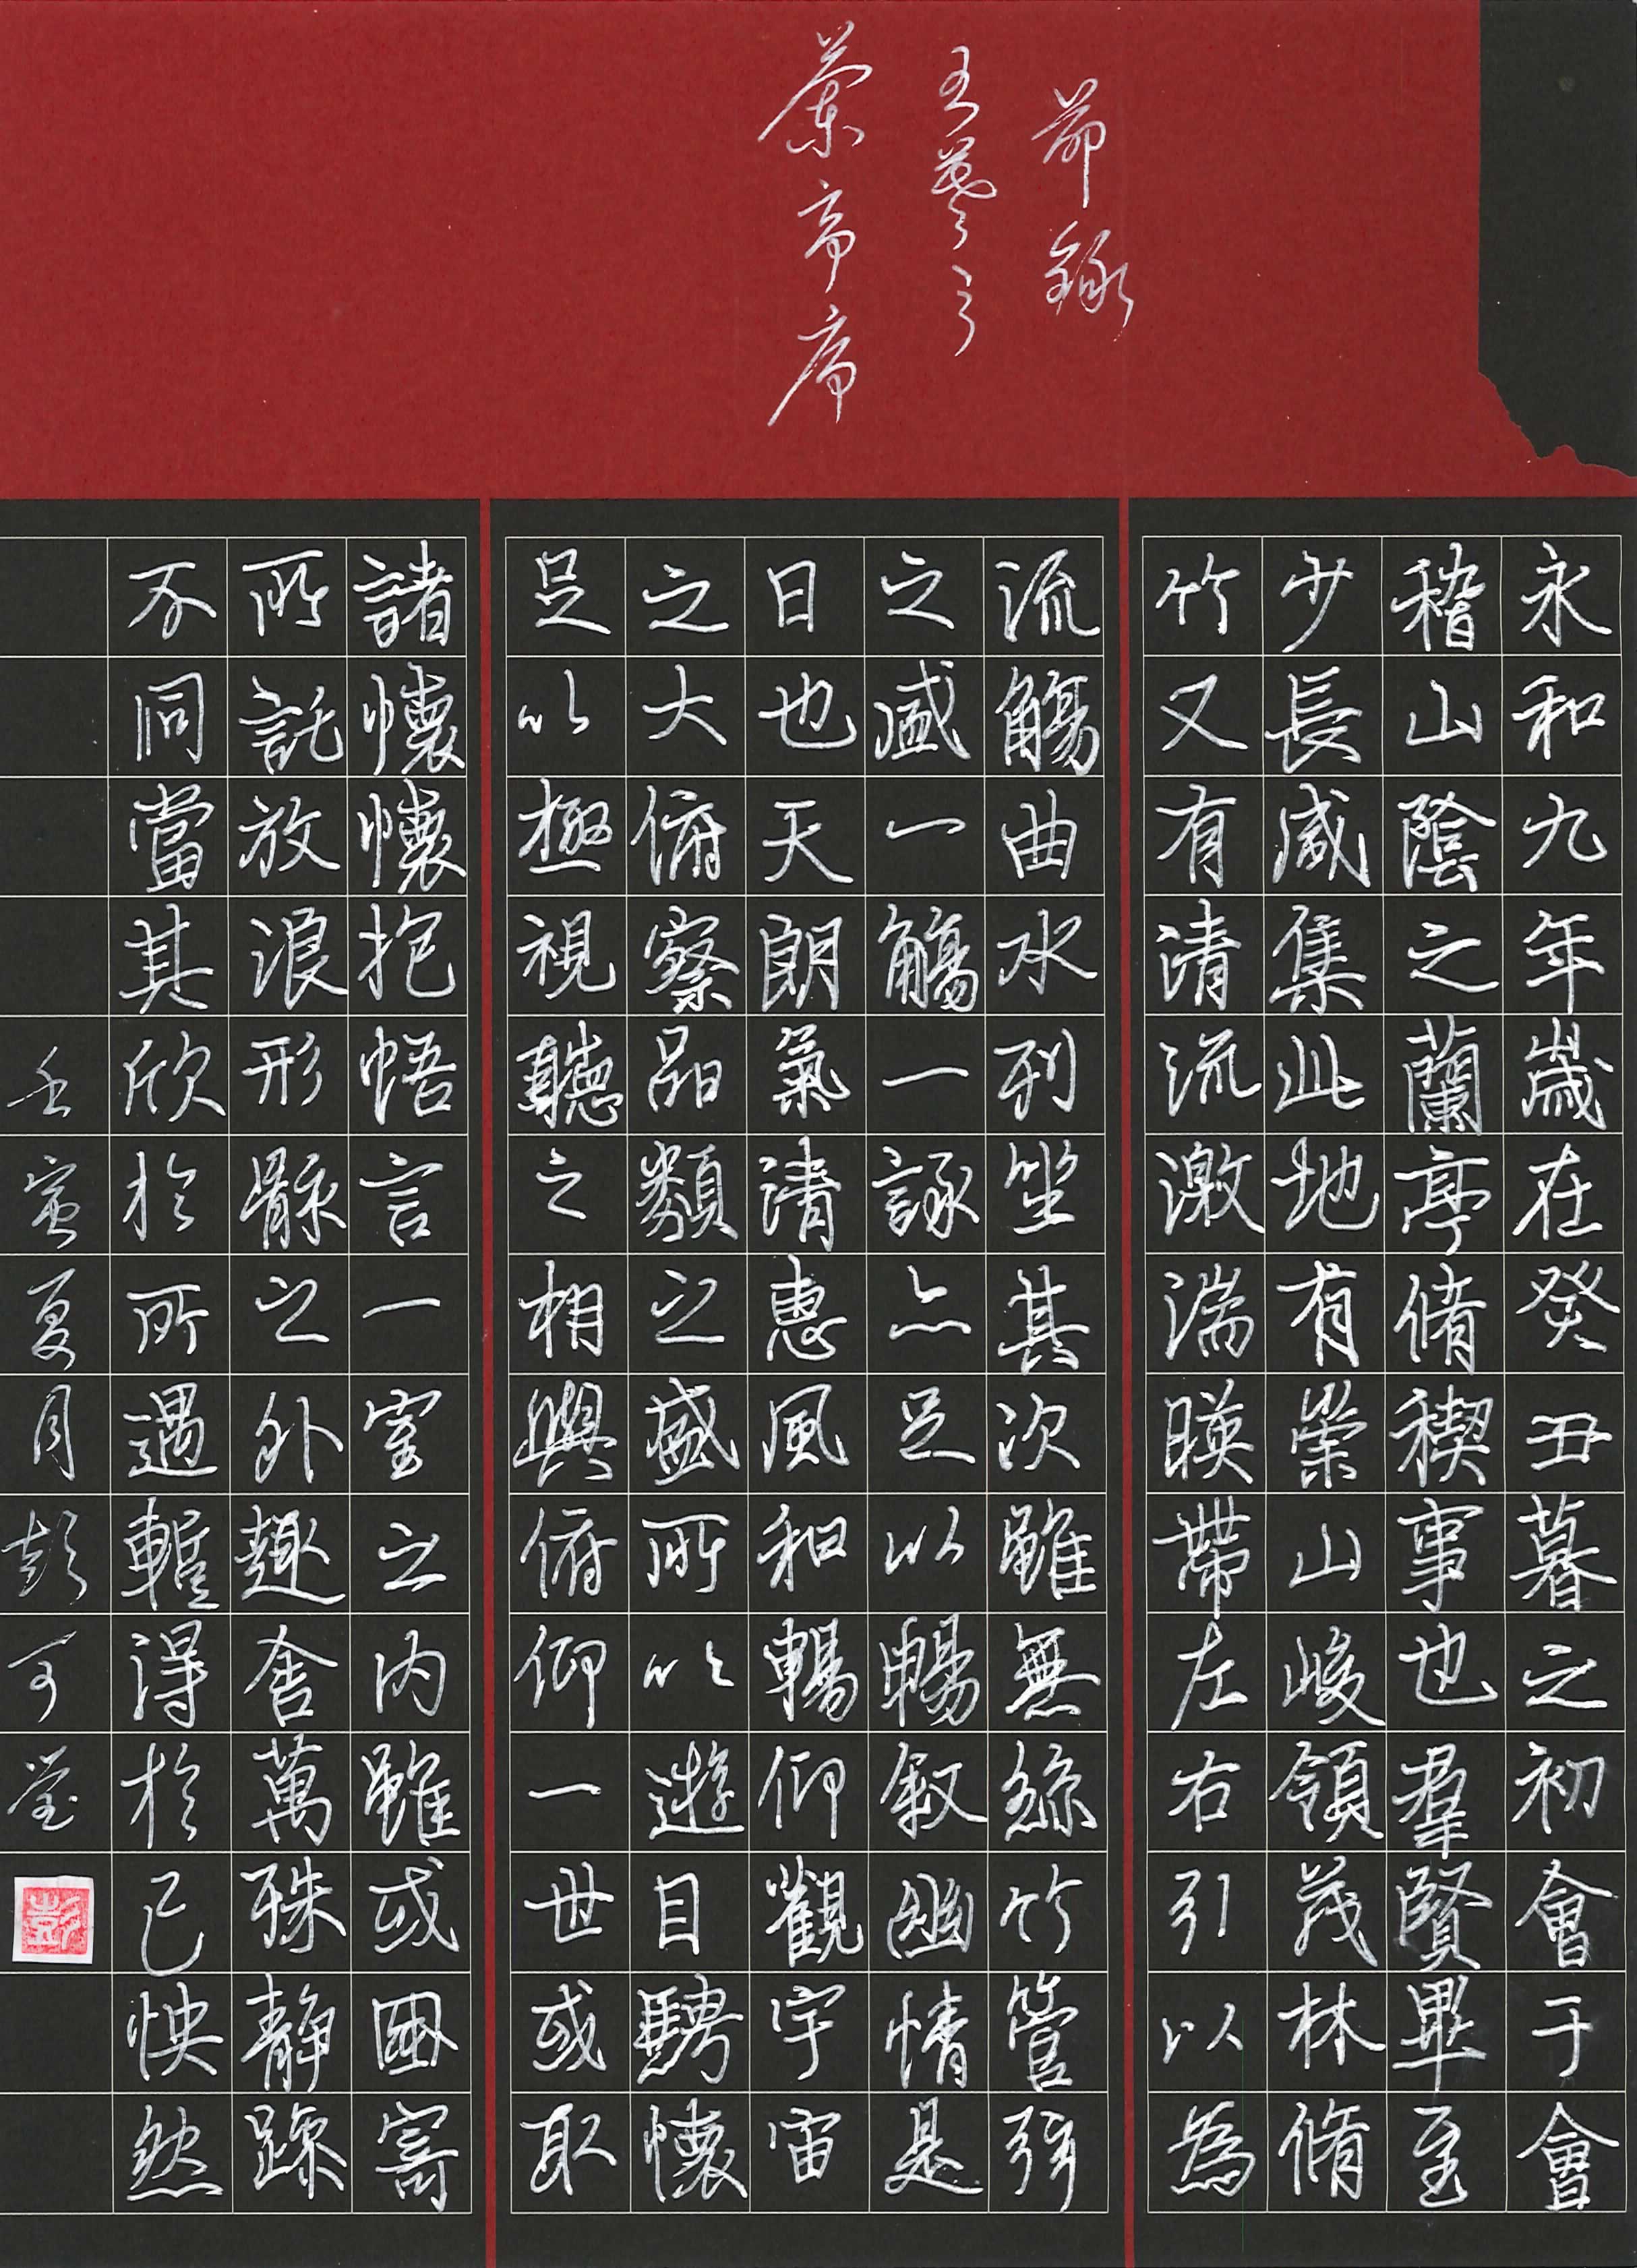 節錄
王羲之
蘭亭序
永和九年歲在癸丑暮之初會于會
稽山陰之蘭亭脩稧事也羣賢畢至
少長咸集此地有崇山峻領茂林脩
竹又有清流激湍暎帶左右引以為
流觴曲水列坐其次雖無絲竹管弦
之盛一觴一詠亦足以暢敘幽情是
日也天朗氣清惠風和暢仰觀宇宙
之大俯察品類之盛所以遊目騁懷
足以極視聽之相與俯仰一世或取
諸懷懷抱悟言一室之內雖或因寄
所託放浪形骸之外趣舍萬殊靜躁
不同當其欣於所遇輒得於己快然
壬寅夏月彭可瑩
彭